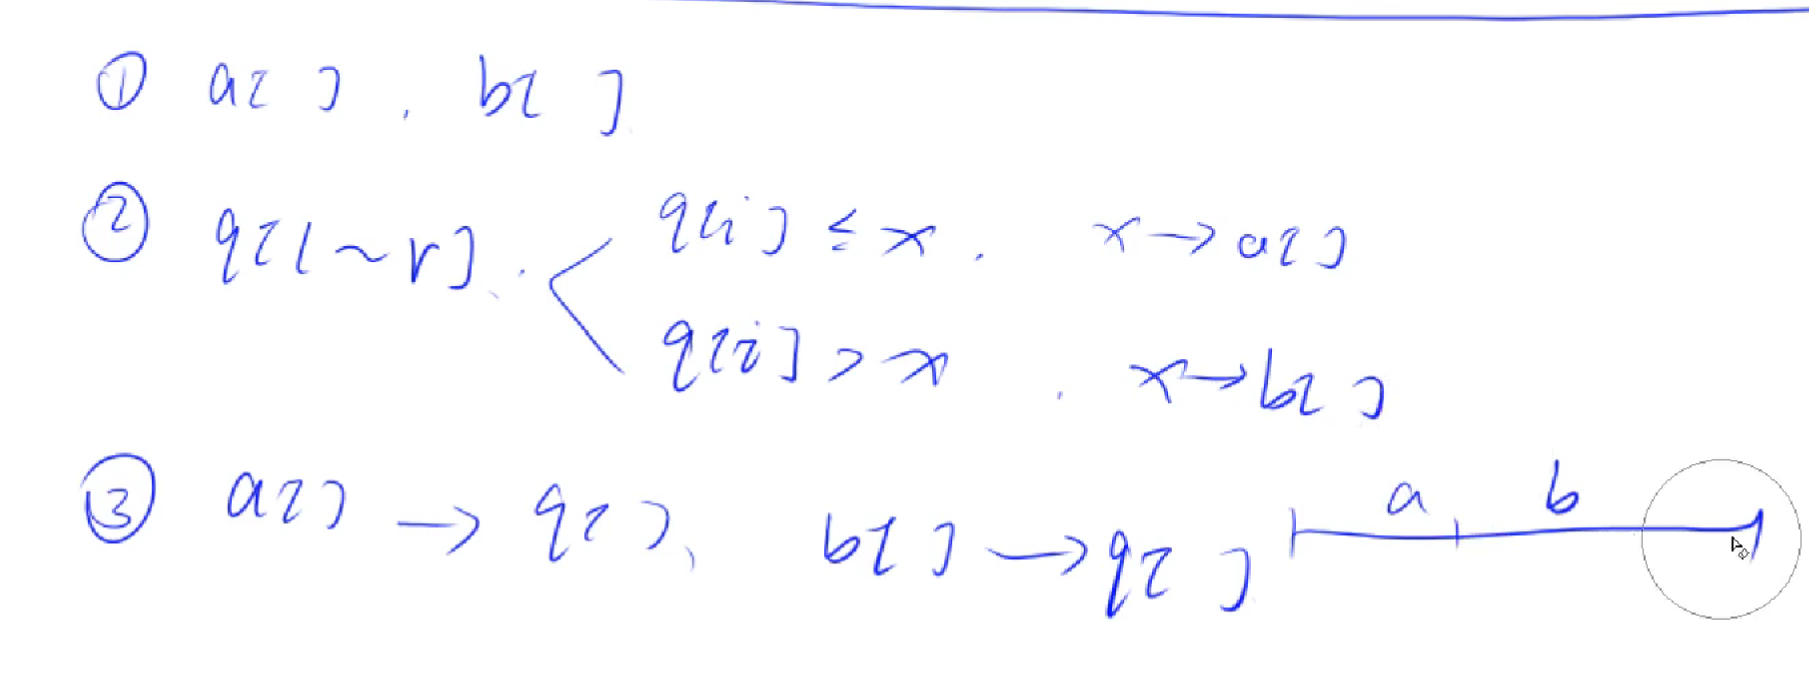 ① a[ ] , b[ ]
② q[l~r] . q[i] ≤ x . x → a[ ]
q[i] > x . x → b[ ]
③ a[ ] → q[ ] , b[ ] → q[ ] a b